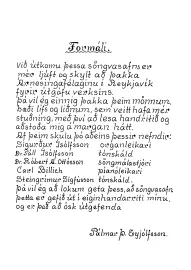 Formáli.
Við útkomu þessa söngvasafns er
mér ljúft og skylt að þakka
Árnesingafélaginu í Reykjavík
fyrir útgáfu verksins.
Þá vil ég einnig þakka þeim mönnum,
bæði lífs og liðnum, sem veitt hafa mér
stuðning, með því að lesa handritið og
aðstoða mig á margan hátt.
Af þeim skulu þó aðeins þessir nefndir:
Sigurður Ísólfsson organleikari
Dr. Páll Ísólfsson tónskáld
Dr. Róbert A. Ottósson söngmálastjóri
Carl Billich píanóleikari
Steingrímur Sigfússon tónskáld.
Þá vil ég að lokum geta þess, að söngvasafn
þetta er gefið út í eiginhandarriti mínu,
og er það að ósk útgefenda
Pálmar Þ. Eyjólfsson.